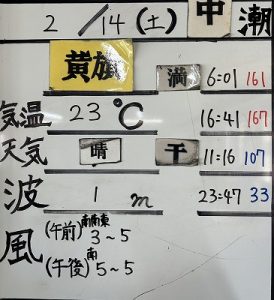 2/14(土) 中潮
黄旗 満 6:01 161
気温 23℃ 16:41 167
天気 晴 干 11:16 107
波 1m 23:47 33
風 (午前) 南南東 3~5
(午後) 南 5~5